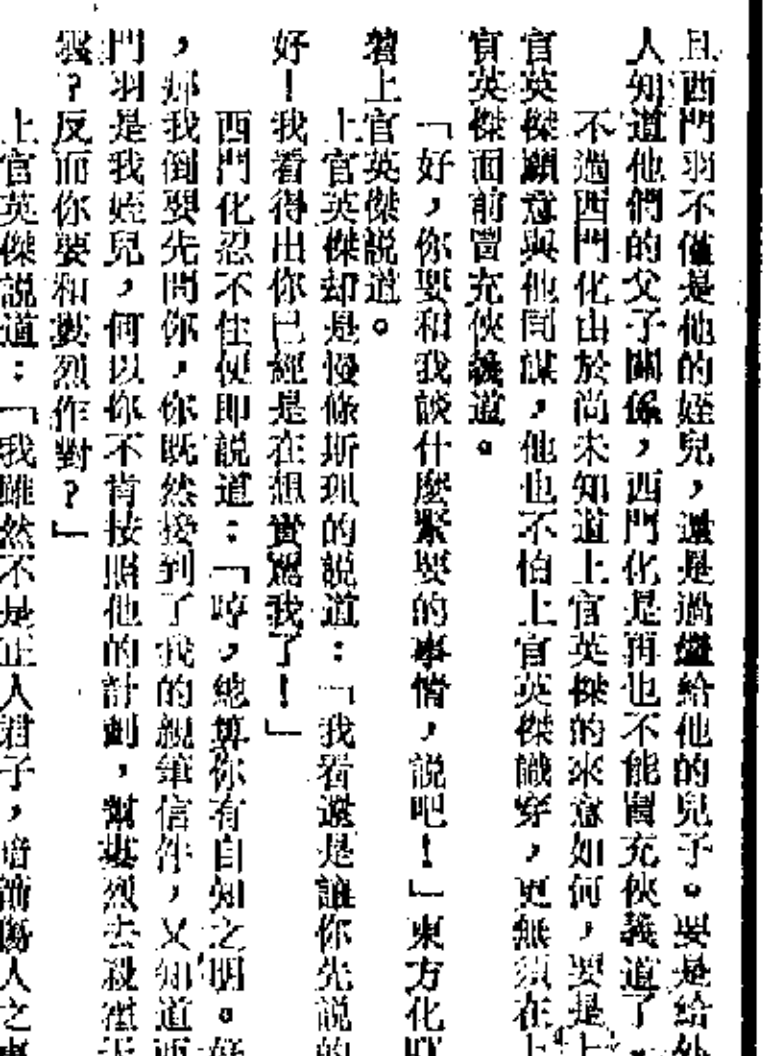 且西門羽不僅是他的姪兒，還是過繼給他的兒子。要是給外
人知道他們的父子關係，西門化是再也不能冒充俠義道了。
不過西門化由於尚未知道上官英傑的來意如何，要是上
官英傑願意與他同謀，他也不怕上官英傑識穿，更無須在上
官英傑面前冒充俠義道。
「好，你要和我談什麼緊要的事情，說吧！」東方化盯
着上官英傑說道。
上官英傑却是慢條斯理的說道：「我看還是讓你先說的
好！我看得出你已經是在想責罵我了！」
西門化忍不住便即說道：「哼，總算你有自知之明。好
，那我倒要先問你，你既然接到了我的親筆信件，又知道西
門羽是我姪兒，何以你不肯按照他的計劃，幫婁烈去殺霍天
雲？反而你要和婁烈作對？」
上官英傑說道：「我雖然不是正人君子，暗箭傷人之事